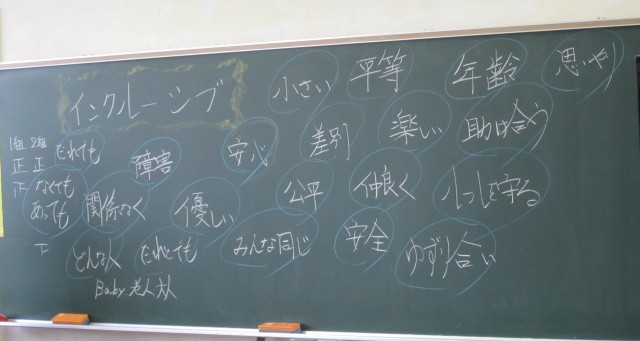 インクルーシブ
小さい 平等 年齢 思いやり
1組 2組
正 正 だれでも 障害 安心 差別 楽しい 助け合う
下 なくても
あっても 関係なく 優しい 公平 仲良く
下 どんな人 だれとでも みんな同じ 安全 ゆずり合い
Baby 老人 大人